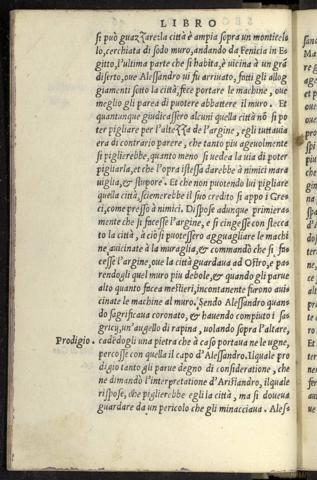 LIBRO
si può guazzare: la città è ampia sopra un monticelo
lo, cerchiata di sodo muro, andando da Fenicia in E=
gitto, l'ultima parte che si habita, è uicina à un grā
diserto, oue Alessandro ui fu arriuato, fatti gli allog
giamenti sotto la città, fece portare le machine, oue
meglio gli parea di puotere abbattere il muro. Et
quantunque giudicassero alcuni quella città nō si po
ter pigliare per l'altezza de l'argine, egli tuttauia
era di contrario parere, che tanto piu ageuolmente
si piglierebbe, quanto meno si uedea la uia di poter
pigliarla, et che l'opra istessa darebbe à nimici mara
uiglia, & stupore. Et che non puotendo lui pigliare
quella città, scemerebbe il suo credito si appo i Gre=
ci, come presso à nimici. Dispose adunque primiera=
mente che si facesse l'argine, e si cingesse con stecca
to la città, à ciò si puotessero agguagliare le machi
ne, auicinate à la muraglia, & commandò che si fa=
cesse l'argine, oue la città guardaua ad Ostro, e pa=
rendogli quel muro piu debole, & quando gli parue
alto quanto facea mestieri, incontanente furono auic
inate le machine al muro. Sendo Alessandro quan=
do sagrificaua coronato, & hauendo compiuto i sa=
gricij, un'augello di rapina, uolando sopra l'altare,
Prodigio. cadedogli una pietra che à caso portaua ne le ugne,
percosse con quella il capo d'Alessandro. Il quale pro
digio tanto gli parue degno di consideratione, che
ne dimandò l'interpretatione d'Aristandro, il quale
rispose, che piglierebbe egli la città, ma si doueua
guardare da un pericolo che gli minacciaua. Ales=